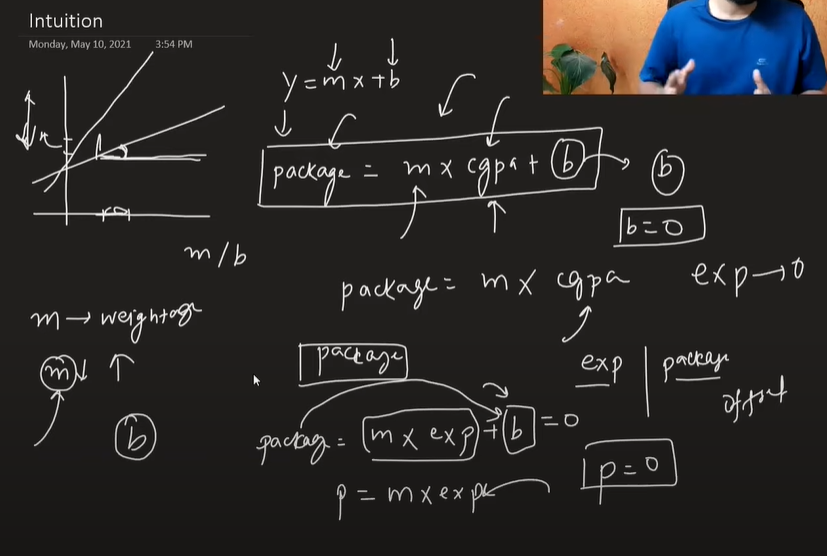 Intuition
Monday, May 10, 2021 3:54 PM
y = mx + b
package = m x cgpa + b → b
b = 0
m/b
package = m x cgpa exp → 0
m → weightage
m ↓ ↑
package
exp | package
offset
b
package = m x exp + b = 0
p = 0
p = m x exp